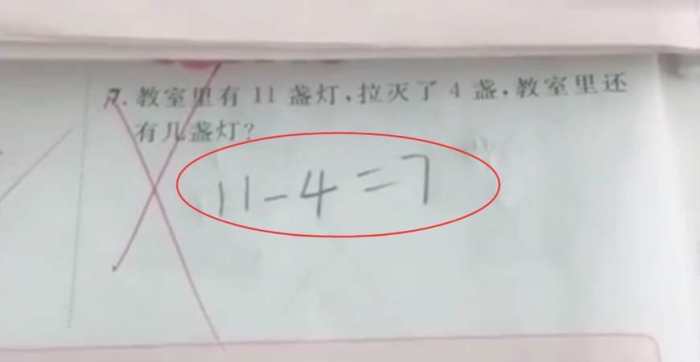 7. 教室里有 11 盏灯,拉灭了 4 盏,教室里还
有几盏灯?
11-4=7